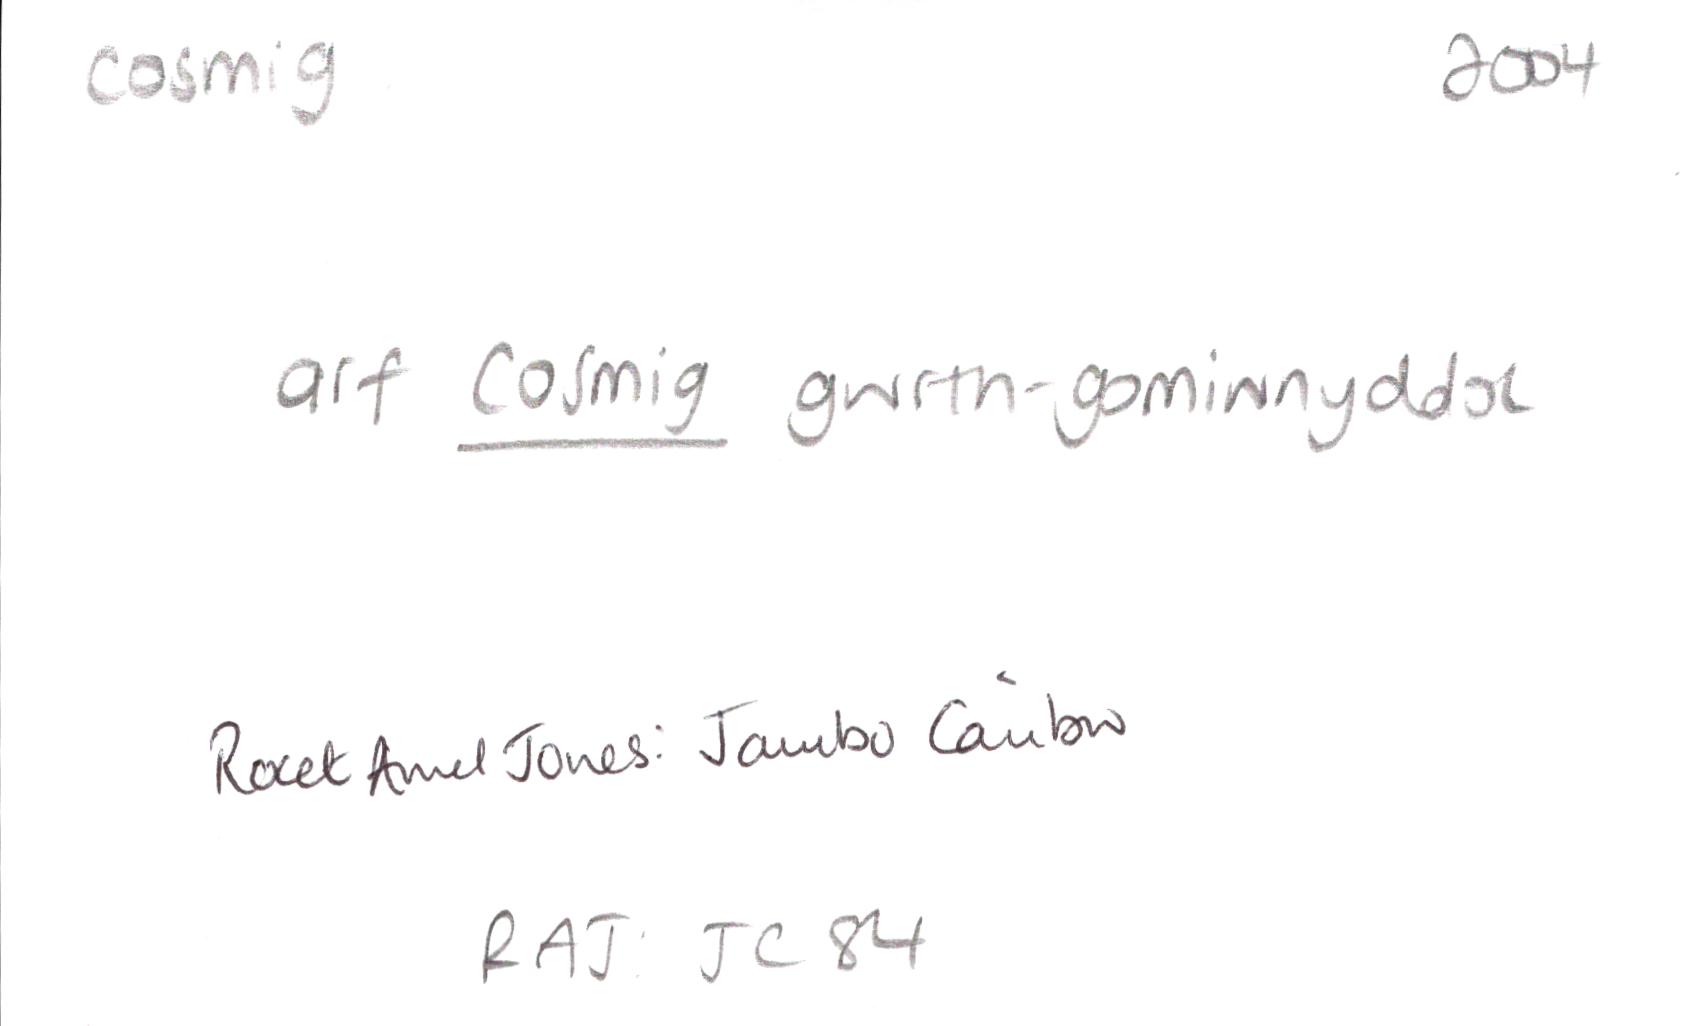 cosmig 2004
arf cosmig gwrth-gomiwnyddol
Rocet Arwel Jones: Jambo Caribw
RAJ: JC 84